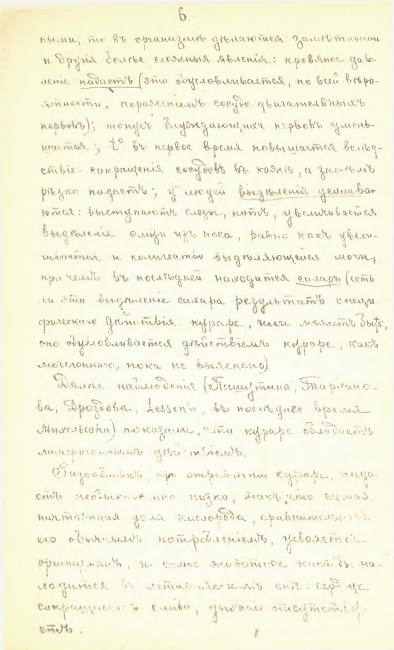 6.
ными, то въ организмѣ дѣлаются замѣтными
и другія болѣе сложныя явленія: кровяное дав-
леніе падаетъ (это обусловливается, по всей вѣро-
ятности, пораженіемъ сосудо-двигательныхъ
нервовъ); тонусъ блуждающихъ нервовъ умень-
шается; t° въ первое время повышается вслѣд-
ствіе сокращенія сосудовъ въ кожѣ, а затѣмъ
рѣзко падаетъ; у людей выдѣленія усилива-
ются: выступаютъ слезы, потъ, увеличивается
выдѣленіе слизи изъ носа, равно какъ увели-
чивается и количество выдѣляющейся мочи,
при чемъ въ послѣдней находится сахаръ (есть
ли это выдѣленіе сахара результатъ специ
фическаго дѣйствія кураре, или можетъ быть,
оно обусловливается дѣйствіемъ кураре, какъ
мочегоннаго, пока не выяснено)
Далѣе наблюденія (Пашутина, Тархано-
ва, Дроздова, Lesser'a, въ послѣднее время
показали, что кураре обладаетъ
лимфогоннымъ дѣйствіемъ.
при отравленіи кураре, пада-
етъ низко, такъ что самая
ничтожная доля кислорода, сравнительно съ
его обычнымъ потребленіемъ, усвояется
организмомъ, и само животное какъ бы на-
ходится въ снѣ: сердце
сокращается едва, дыханіе отсутству-
етъ.